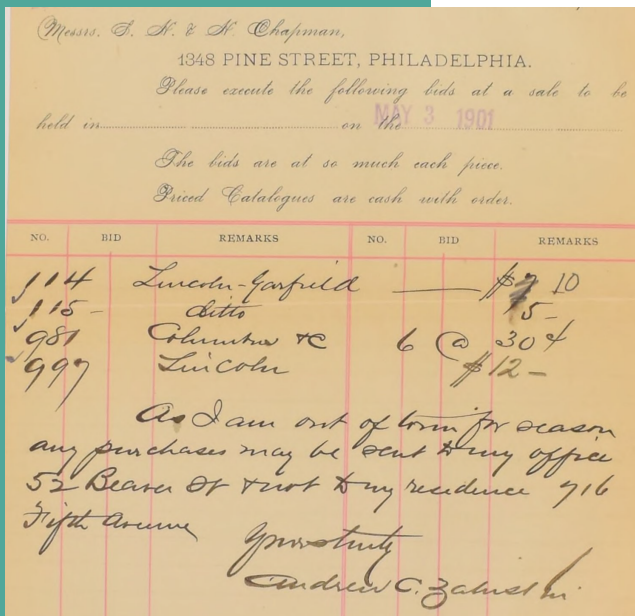 Messrs. S. H. & H. Chapman,
1348 PINE STREET, PHILADELPHIA.
Please execute the following bids at a sale to be
held in on the MAY 3 1901
The bids are at so much each piece.
Priced Catalogues are cash with order.
NO. BID REMARKS NO. BID REMARKS
114 Lincoln-Garfield $ 10
115- ditto 5-
981 Columbus &C 6 @ 30¢
997 Lincoln $12-
As I am out of town for season
any purchases may be sent to my office
52 Beaver St & not to my residence 716
Fifth Avenue
Yours truly
Andrew C. Zabriskie